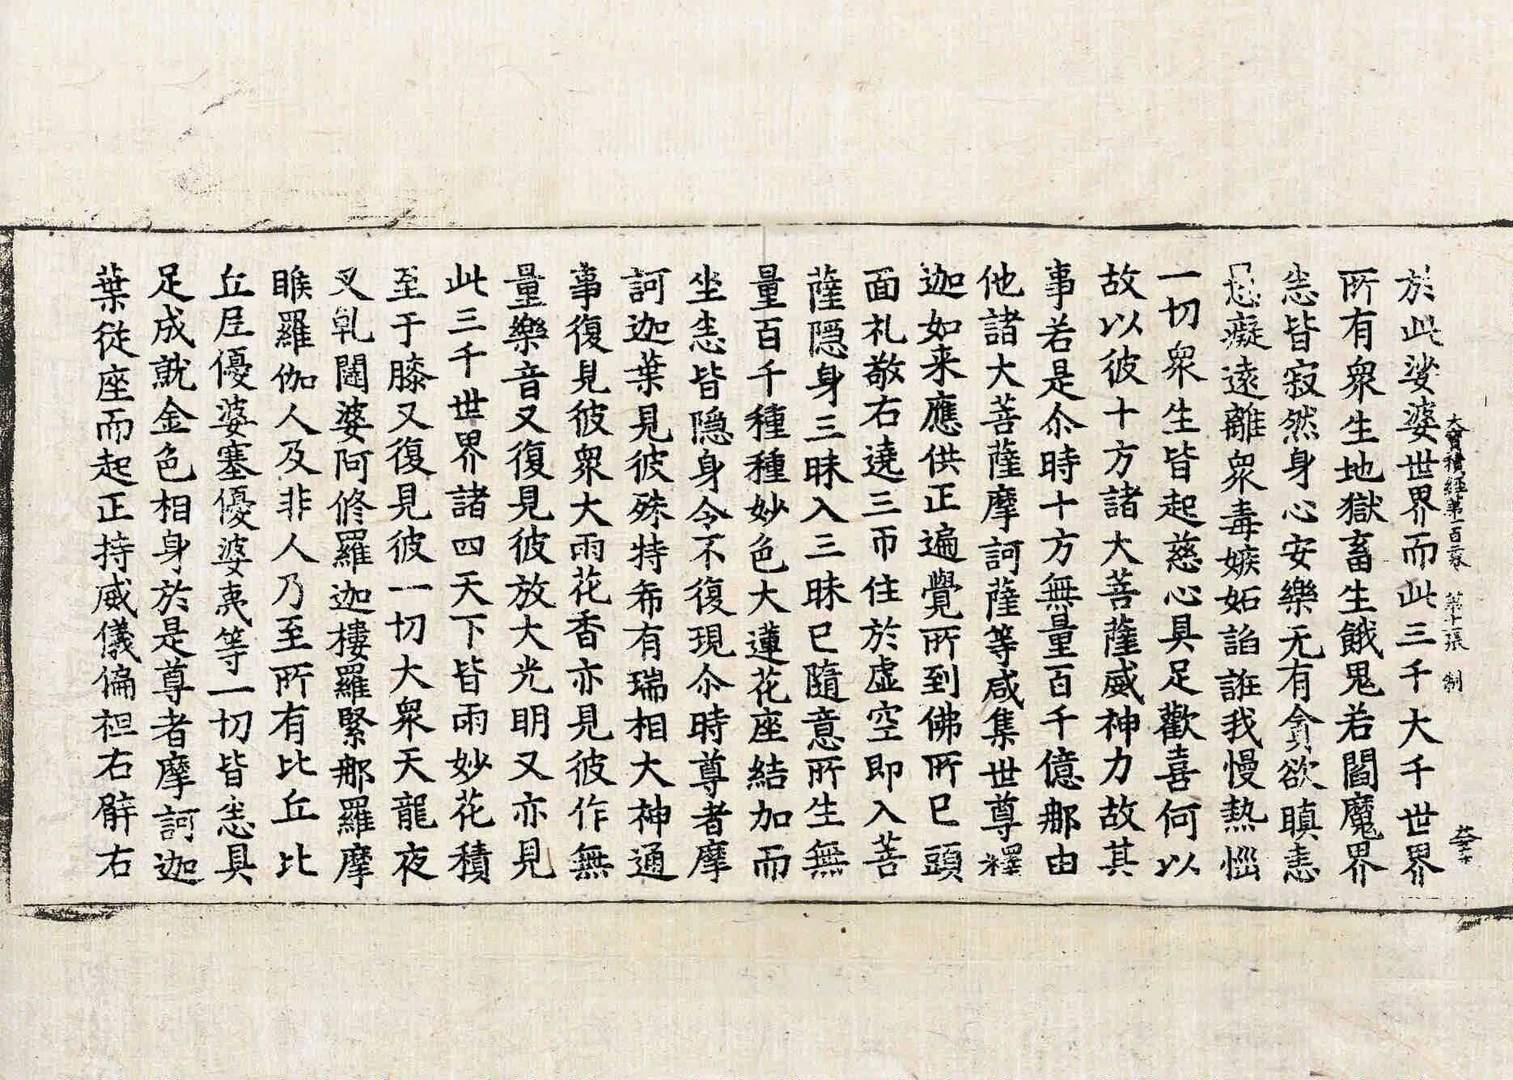 大寶積經第一百二卷 第十張 制
於此娑婆世界而此三千大千世界
所有衆生地獄畜生餓鬼若閻魔界
恙皆寂然身心安樂无有貪欲瞋恚
癡遠離衆毒嫉妬諂誑我慢熱惱
一切衆生皆起慈心具足歡喜何以
故以彼十方諸大菩薩威神力故其
事若是尒時十方無量百千億那由
他諸大菩薩摩訶薩等咸集世尊釋
迦如来應供正遍覺所到佛所已頭
面礼敬右遶三帀住於虛空即入菩
薩隱身三昧入三昧已隨意所生無
量百千種種妙色大蓮花座結加而
坐恙皆隱身令不復現尒時尊者摩
訶迦葉見彼殊特希有瑞相大神通
事復見彼衆大雨花香亦見彼作無
量樂音又復見彼放大光明又亦見
此三千世界諸四天下皆雨妙花積
至于膝又復見彼一切大衆天龍夜
叉乹闥婆阿修羅迦樓羅緊那羅摩
睺羅伽人及非人乃至所有比丘比
丘尼優婆塞優婆夷等一切皆恙具
足成就金色相身於是尊者摩訶迦
葉從座而起正持威儀偏袒右髀右